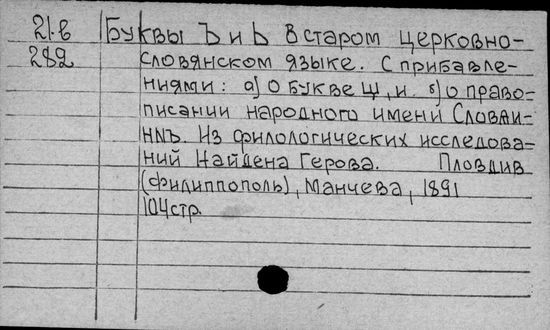 21.в Буквы Ъ и Ь в старом церковно-
282 словянском языке. С прибавле-
ниями: а) О букве Щ, и б) о право-
писании народного имени Словѣи-
инъ. Из филологических исследова-
ний Найдена Герова. Пловдив
(Филиппополь), Манчева, 1891
104 стр.